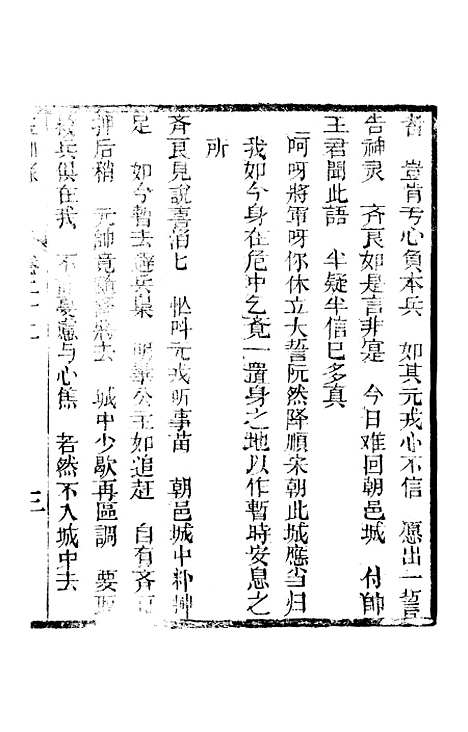 者 豈肯亏心負本兵 如其元戎心不信 愿出一誓
告神灵 齐艮如是言非寔 今日难回朝邑城 付帥
王君聞此語 半疑半信巳多真
呵呀將軍呀你休立大誓阮然降順宋朝此城應当归
我如今身在危中乞竟一置身之地以作暫時安息之
所
齐艮見說喜滔七 忙呌元戎听事苗 朝邑城中粉艸
足 如今暫去避兵梟 明華公主如追赶 自有齐艮
后稍 元帥竟随 將去 城中少歇再區調 要
兵俱在我 不 憂愁与心焦 若然不入城中去
卷二十二 三